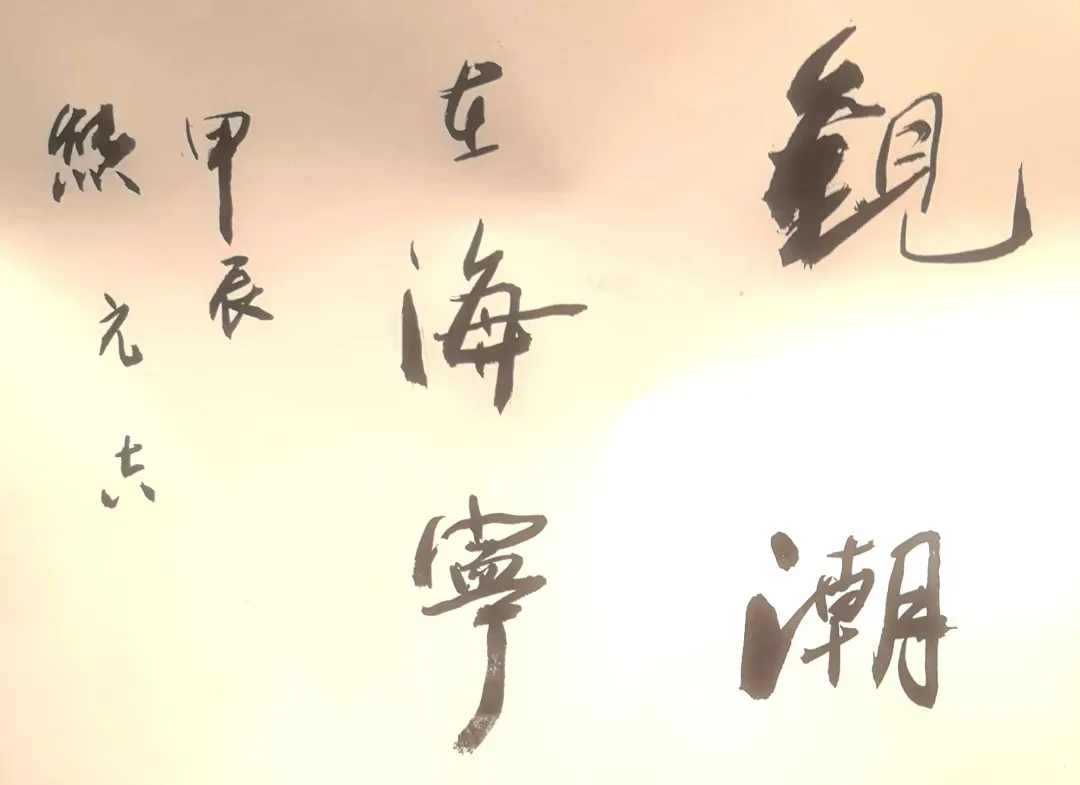 觀潮
在海寧
甲辰
元